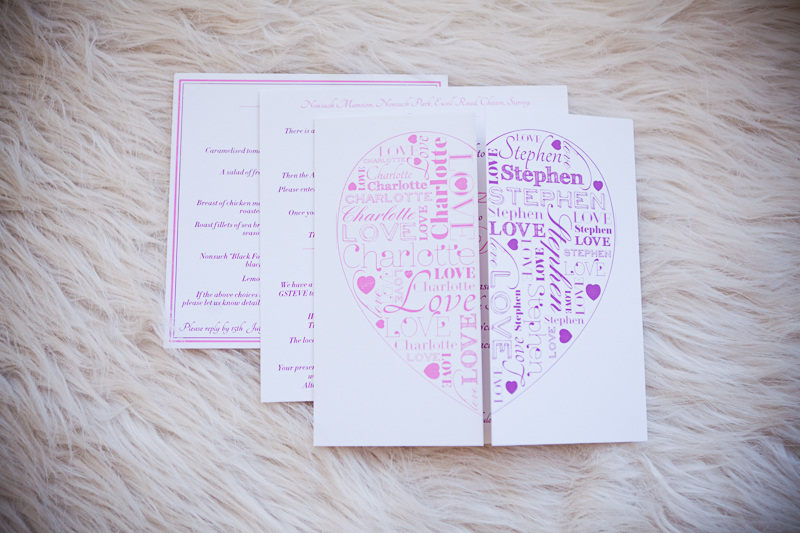 Caramelised tom
A salad of fre
Breast of chicken
roaste
Roast fillets of sea br
seaso
Nonsuch "Black Fo
blac
Lemo
If the above choices
please let us know detail
Please reply by 15th July
Nonsuch Mansion, Nonsuch Park, Ewell Road, Cheam, Surrey
There is a
Then the A
Please ente
Once yo
We have a
GSTEVE to
H
The loca
Your presen
w
Alte
LOVE
CHARLOTTE
Love
LOVE
Charlotte
Charlotte
CHARLOTTE
Charlotte
LOVE
LOVE
Charlotte
LOVE
Charlotte
LOVE
Charlotte
Love
LOVE
LOVE
Charlotte
LOVE
LOVE
LOVE
LOVE
Stephen
Love
LOVE
Stephen
STEPHEN
Stephen
LOVE
LOVE
Stephen
Stephen
LOVE
STEPHEN
LOVE
LOVE
LOVE
Stephen
Stephen
LOVE
Stephen
Love
LOVE
LOVE